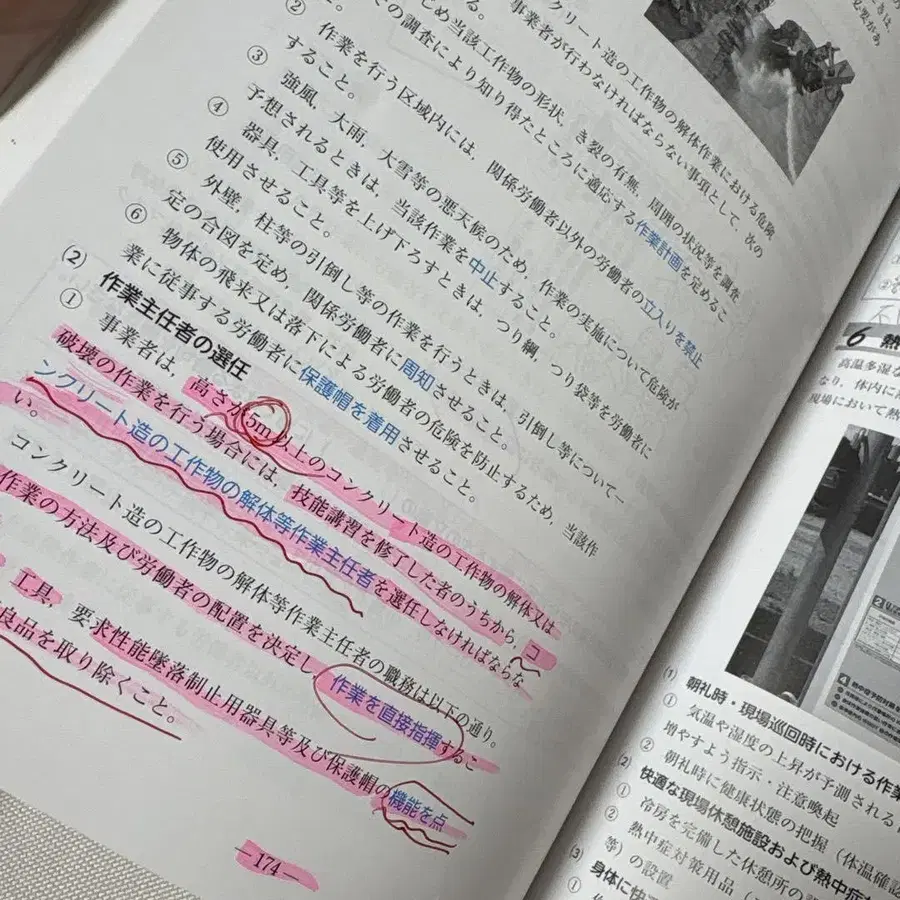 コンクリート造の工作物の解体作業における危険
事業者が行わなければならない事項として、次の
当該工作物の形状、き裂の有無、周囲の状況等を調査
の調査により知り得たところに適応する作業計画を定めるこ
②
作業を行う区域内には、関係労働者以外の労働者の立入りを禁止
すること。
③ 強風、大雨、大雪等の悪天候のため、作業の実施について危険が
予想されるときは、当該作業を中止すること。
④ 器具、工具等を上げ下ろすときは、つり綱、つり袋等を労働者に
使用させること。
⑤ 外壁、柱等の引倒し等の作業を行うときは、引倒し等について一
定の合図を定め、関係労働者に周知させること。
⑥ 物体の飛来又は落下による労働者の危険を防止するため、当該作
業に従事する労働者に保護帽を着用させること。
(2) 作業主任者の選任
① 事業者は、高さが5m以上のコンクリート造の工作物の解体又は
破壊の作業を行う場合には、技能講習を修了した者のうちから、コ
ンクリート造の工作物の解体等作業主任者を選任しなければならな
い。
コンクリート造の工作物の解体等作業主任者の職務は以下の通り。
作業の方法及び労働者の配置を決定し、作業を直接指揮するこ
工具、要求性能墜落制止用器具等及び保護帽の機能を点
良品を取り除くこと。
―174―
6 熱
高温多湿な
なり、体内に
現場において熱
(1) 朝礼時・現場巡回時における作業
① 気温や湿度の上昇が予測される
増やすよう指示・注意喚起
② 朝礼時に健康状態の把握(体温確認
(2) 快適な現場休憩施設および熱中症
① 冷房を完備した休憩所の
② 熱中症対策用品
等)の設置
(3) 身体に快
①